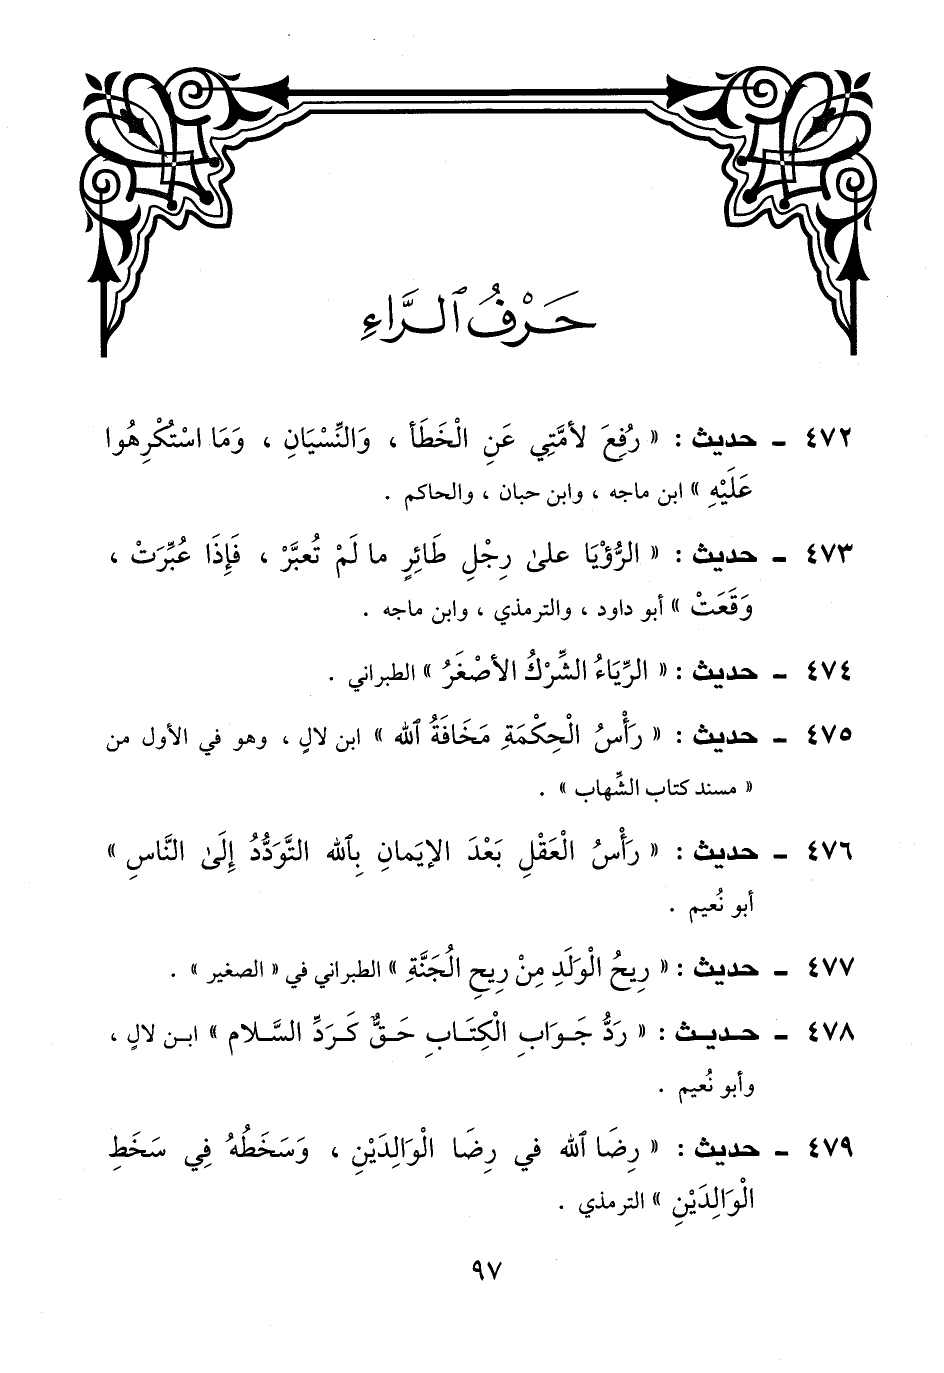 حَرْفُ ٱلرَّاءِ
٤٧٢ - حديث : « رُفِعَ لأمَّتِي عَنِ الْخَطَأ ، وَالنِّسْيَانِ ، وَمَا اسْتُكْرِهُوا
عَلَيْهِ » ابن ماجه ، وابن حبان ، والحاكم .
٤٧٣ - حديث : « الرُّؤْيَا علىٰ رِجْلِ طَائِرٍ ما لَمْ تُعبَّرْ ، فَإِذَا عُبِّرَتْ ،
وَقَعَتْ » أبو داود ، والترمذي ، وابن ماجه .
٤٧٤ - حديث : « الرِّيَاءُ الشِّرْكُ الأصْغَرُ » الطبراني .
٤٧٥ - حديث : « رَأْسُ الْحِكْمَةِ مَخَافَةُ ٱلله » ابن لالٍ ، وهو في الأول من
« مسند كتاب الشِّهاب » .
٤٧٦ - حديث : « رَأْسُ الْعَقْلِ بَعْدَ الإيَمانِ بِٱلله التَّوَدُّدُ إِلَىٰ النَّاسِ »
أبو نُعيم .
٤٧٧ - حديث : « رِيحُ الْوَلَدِ مِنْ رِيحِ الْجَنَّةِ » الطبراني في « الصغير » .
٤٧٨ - حـديـث : « رَدُّ جَـوَابِ الْكِتَـابِ حَـقٌّ كَـرَدِّ السَّـلام » ابـن لالٍ ،
وأبو نُعيم .
٤٧٩ - حديث : « رِضَا ٱلله في رِضَا الْوَالِدَيْنِ ، وَسَخَطُهُ فِي سَخَطِ
الْوَالِدَيْنِ » الترمذي .
٩٧